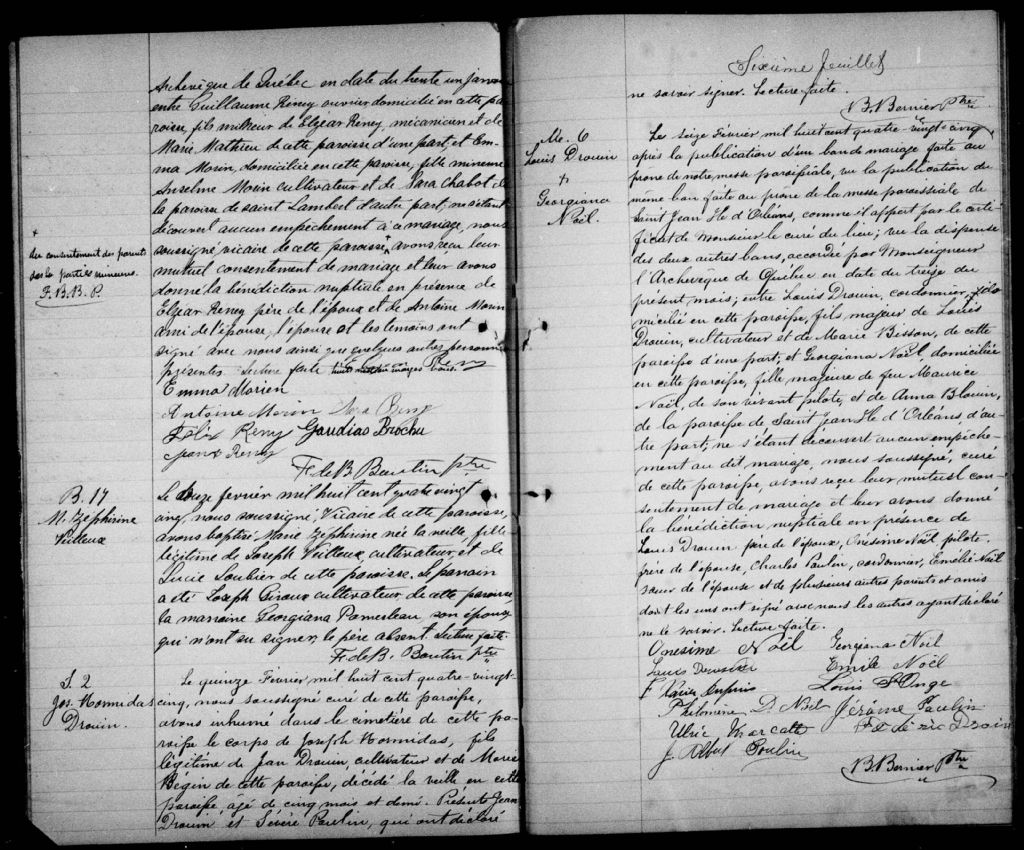 Archevêque de Québec en date du trente un janvier
entre Guillaume Rémy ouvrier domicilié en cette pa
roisse, fils mineur de Elzear Remy, mécanicien et de
Marie Mathieu de cette paroisse d'une part, et Em-
ma Morin, domiciliée en cette paroisse, fille mineure
Anselme Morin cultivateur et de Sara Chabot de
la paroisse de saint Lambert d'autre part; ne s'étant
découvert aucun empêchement à ce mariage, nous
soussigné, vicaire de cette paroisse + avons reçu leur
mutuel consentement de mariage et leur avons
donné la bénédiction nuptiale en présence de
Elzear Remy père de l'époux et de Antoine Morin
ami de l'épouse, l'épouse et les témoins ont
signé avec nous ainsi que quelques autres personnes
présentes Lecture faite
Emma Morien
Antoine Morin
Felix Remy Gaudias Brochu
F. de B. Boutin ptre
+
du consentement des parents
des parties mineures.
F. B. B. P.
B. 17
M. Zéphirine
Veilleux
Le douze fevrier mil huit cent quatre vingt
cinq, nous soussigné, Vicaire de cette paroisse,
avons baptisé Marie Zephirine née la veille, fille
légitime de Joseph Veilleux cultivateur et de
Lucie Loubier de cette paroisse. Le parrain
a été Joseph Giroux cultivateur de cette paroisse
la marraine Georgiana Pomerleau son épouse
qui n'ont su signer, le père absent. Lecture faite.
F. de B. Boutin ptre
S. 2
Jos. Hormidas
Drouin.
Le quinze Février mil huit cent quatre-vingt-
cinq, nous soussigné curé de cette paroisse,
avons inhumé dans le cemetière de cette pa-
roisse le corps de Joseph Hormidas, fils
légitime de Jean Drouin, cultivateur et de Marie
Bégin de cette paroisse, décédé la veille en cette
paroisse âgé de cinq mois et demi. Présents Jean
Drouin et Sévère Poulin, qui ont déclaré
Sixième feuillet
ne savoir signer. Lecture faite.
B. Bernier Ptre
M. 6
Louis Drouin
+
Georgiana
Noël.
Le seize Février mil huit cent quatre-vingt-cinq
après la publication d'un ban de mariage faite au
prône de notre messe paroissiale, vu la publication du
même ban faite au prône de la messe paroissiale de
Saint Jean Ile d'Orléans, comme il appert par le certi-
ficat de Monsieur le curé du lieu; vu la dispense
des deux autres bans, accordée par Monseigneur
l'Archevêque de Québec en date du treize du
présent mois; entre Louis Drouin, cordonnier, do
micilié en cette paroisse, fils majeur de Louis
Drouin, cultivateur et de Marie Bisson, de cette
paroisse d'une part, et Georgiana Noël domiciliée
en cette paroisse, fille majeure de feu Maurice
Noël, de son vivant pilote, et de Anna Blouin,
de la paroisse de Saint Jean Ile d'Orléans, d'au-
tre part, ne s'étant découvert aucun empêche-
ment au dit mariage, nous soussigné, curé
de cette paroisse, avons reçu leur mutuel con-
sentement de mariage et leur avons donné
la bénédiction nuptiale en présence de
Louis Drouin père de l'époux, Onesime Noël pilote
frère de l'épouse, Charles Poulin, cordonnier, Emélie Noël
sœur de l'épouse et de plusieurs autres parents et amis
dont les uns ont signé avec nous les autres ayant déclaré
ne le savoir. Lecture faite.
Onesime Noël Georgiana Noël
Emilie Noël
Louis St Onge
Philomène D. Noël Jérôme Poulin
Ulric Marcotte Fédéric Drouin
J. Albert Poulin
B. Bernier Ptre